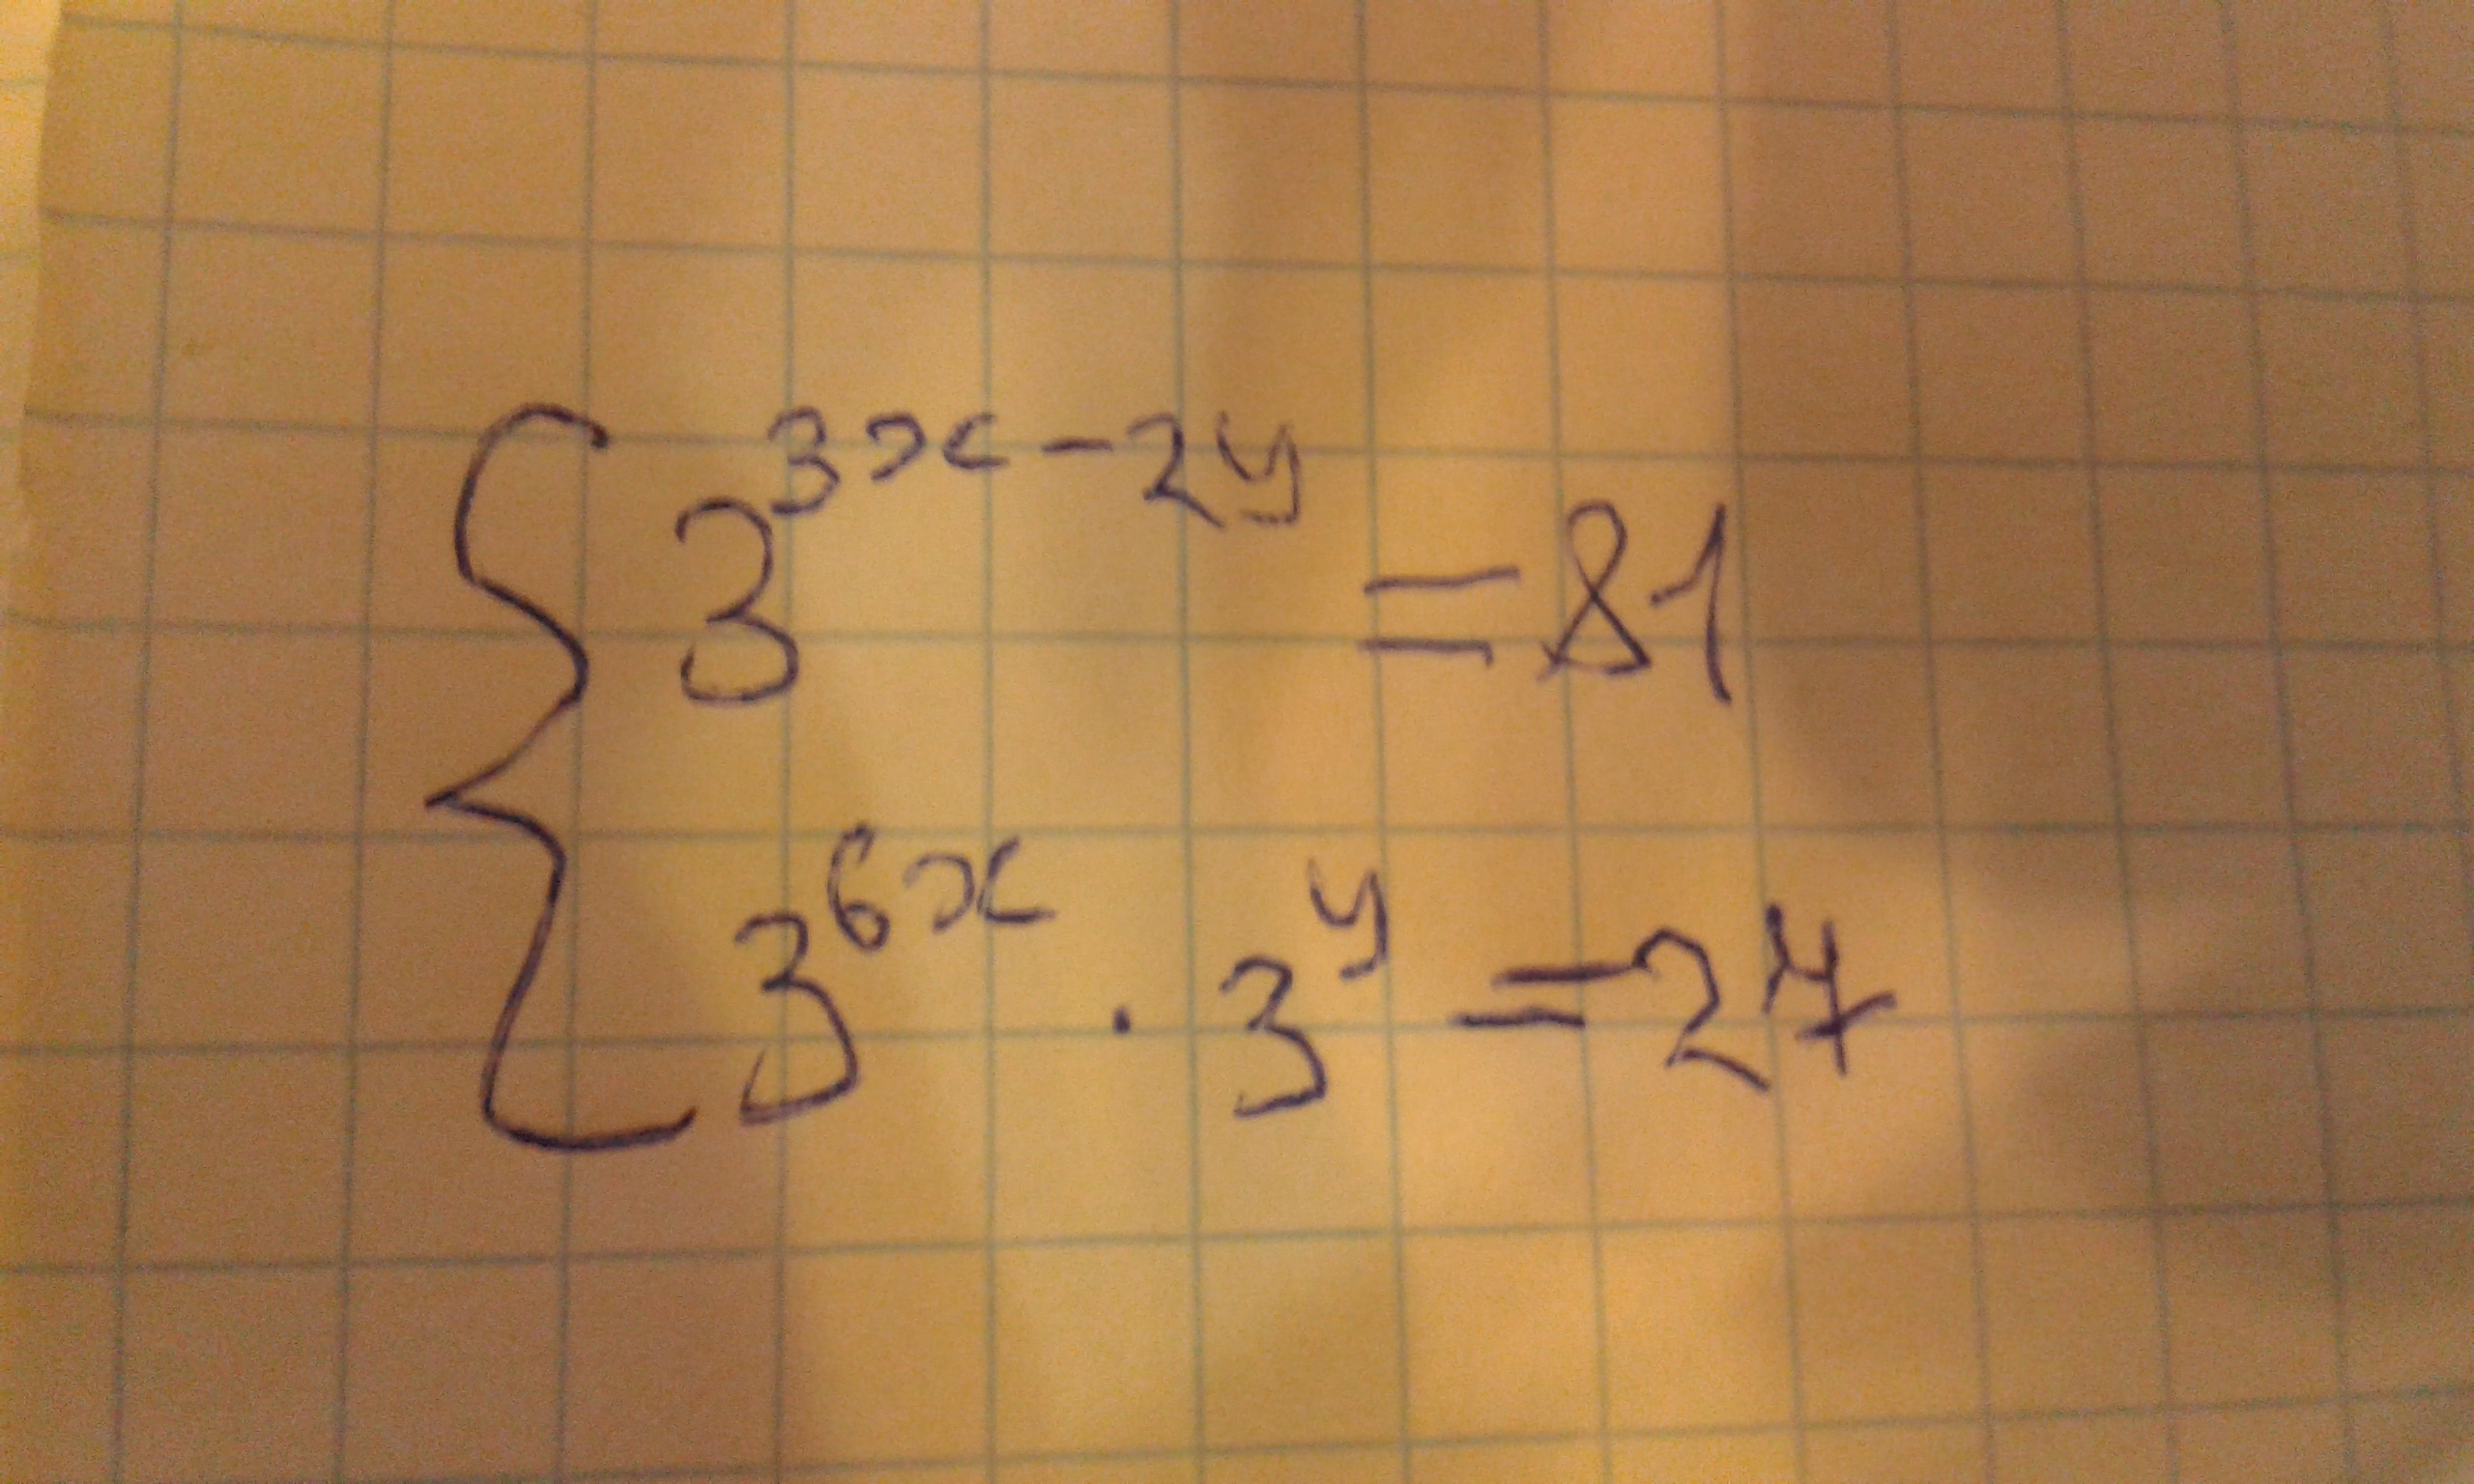 3^{3x-2y} = 81
3^{6x} · 3^{y} = 27